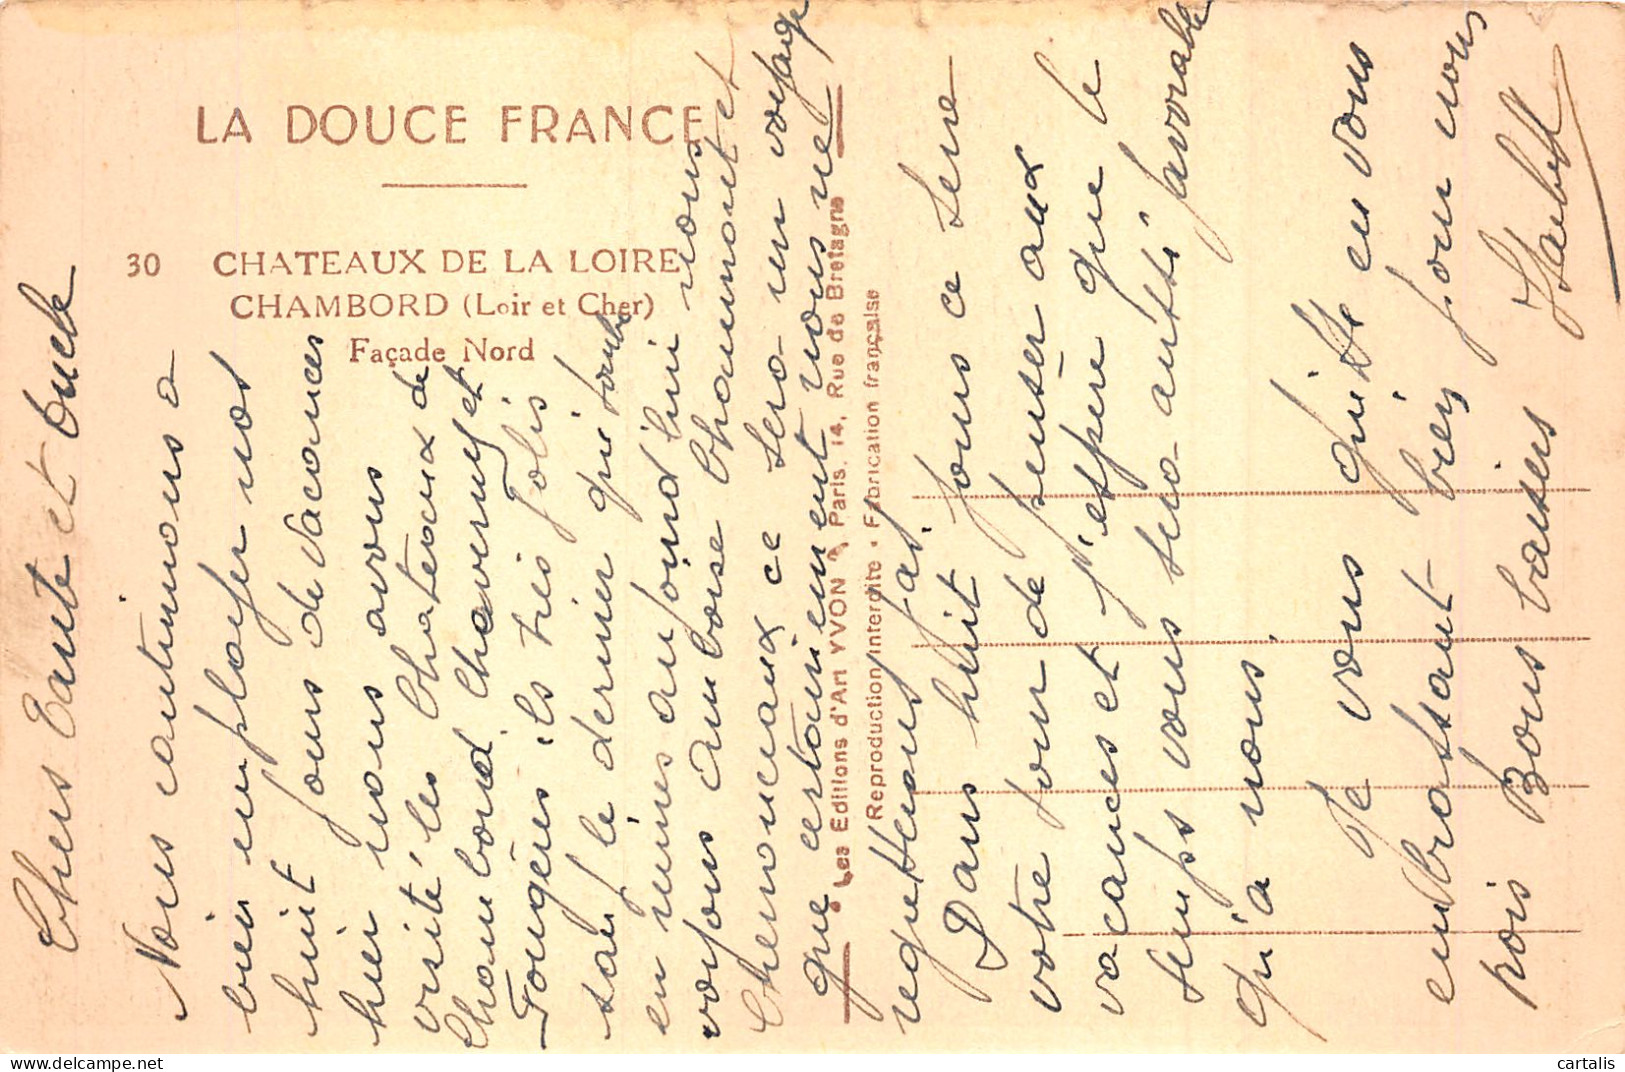 LA DOUCE FRANCE
30 CHATEAUX DE LA LOIRE
CHAMBORD (Loir et Cher)
Façade Nord
Les Editions d'Art YVON, Paris, 14, Rue de Bretagne
Reproduction interdite - Fabrication française
Chers Tante et Oncle
Nous continuons a
bien employer nos
huit jours de vacances
hier nous avons
visité les Chateaux de
Chambord, Chaverny et
Fougères, ils très jolis
sauf le dernier qui tombe
en ruines aujourd'hui nous
voyons Amboise Chaumont et
Chenonceaux ce sera un voyage
que certainement vous ne
regretterons pas.
Dans huit jours ce sera
votre tour de penser aux
vacances et j'espère que le
temps vous sera aussi favorable
qu'a nous.
Je vous quitte en vous
embrassant bien pour nous
trois Bons baisers
cartalis